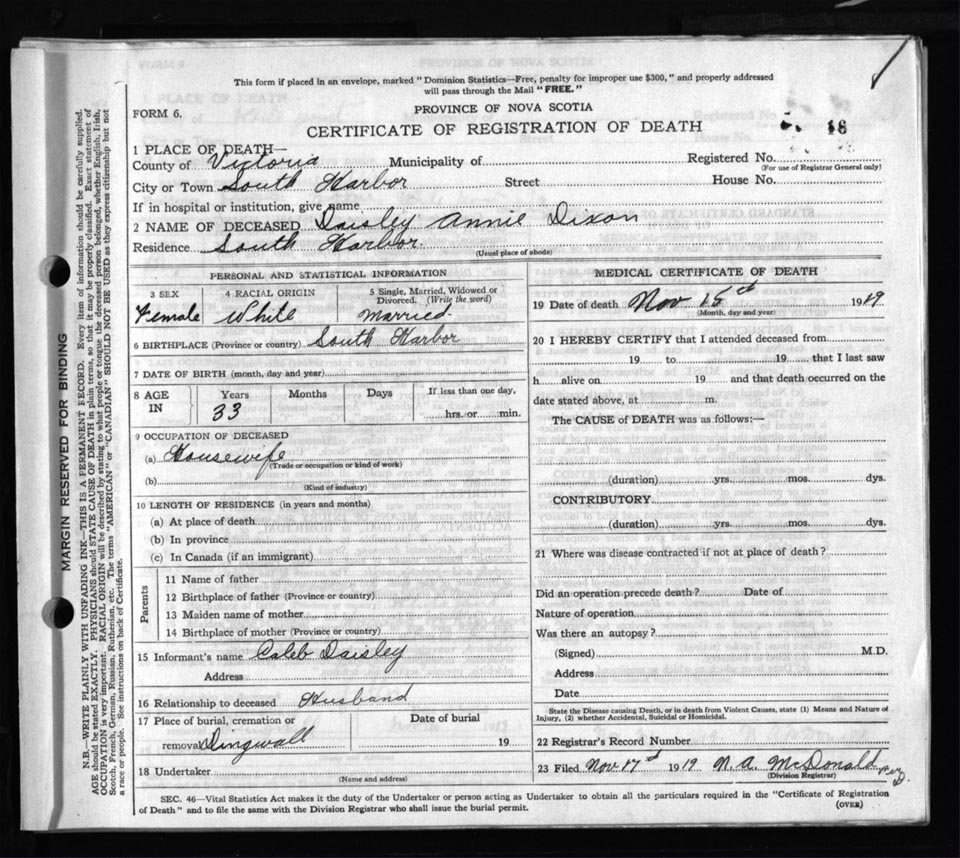 This form if placed in an envelope, marked "Dominion Statistics—Free, penalty for improper use $300," and properly addressed
will pass through the Mail "FREE."
PROVINCE OF NOVA SCOTIA
FORM 6.
CERTIFICATE OF REGISTRATION OF DEATH
18
1 PLACE OF DEATH—
County of Victoria Municipality of Registered No.
(For use of Registrar General only)
City or Town South Harbor Street House No.
If in hospital or institution, give name
2 NAME OF DECEASED Daisley Annie Dixon
Residence South Harbor.
(Usual place of abode)
PERSONAL AND STATISTICAL INFORMATION
3 SEX 4 RACIAL ORIGIN 5 Single, Married, Widowed or
Divorced. (Write the word)
Female White Married.
6 BIRTHPLACE (Province or country) South Harbor
7 DATE OF BIRTH (month, day and year)
8 AGE IN Years Months Days If less than one day,
33 hrs. or min.
9 OCCUPATION OF DECEASED
(a) Housewife
(Trade or occupation or kind of work)
(b)
(Kind of industry)
10 LENGTH OF RESIDENCE (in years and months)
(a) At place of death
(b) In province
(c) In Canada (if an immigrant)
Parents
11 Name of father
12 Birthplace of father (Province or country)
13 Maiden name of mother
14 Birthplace of mother (Province or country)
15 Informant's name Caleb Daisley
Address
16 Relationship to deceased Husband
17 Place of burial, cremation or Date of burial
removal Dingwall 19
18 Undertaker
(Name and address)
MEDICAL CERTIFICATE OF DEATH
19 Date of death Nov 15th 1919
(Month, day and year)
20 I HEREBY CERTIFY that I attended deceased from
19 to 19 that I last saw
h alive on 19 and that death occurred on the
date stated above, at m.
The CAUSE of DEATH was as follows:—
(duration) yrs. mos. dys.
CONTRIBUTORY
(duration) yrs. mos. dys.
21 Where was disease contracted if not at place of death?
Did an operation precede death? Date of
Nature of operation
Was there an autopsy?
(Signed) M.D.
Address
Date
State the Disease causing Death, or in death from Violent Causes, state (1) Means and Nature of
Injury, (2) whether Accidental, Suicidal or Homicidal.
22 Registrar's Record Number
23 Filed Nov 17th 1919 N. A. McDonald
(Division Registrar)
SEC. 46—Vital Statistics Act makes it the duty of the Undertaker or person acting as Undertaker to obtain all the particulars required in the "Certificate of Registration
of Death" and to file the same with the Division Registrar who shall issue the burial permit.
(OVER)
MARGIN RESERVED FOR BINDING
N.B.—WRITE PLAINLY WITH UNFADING INK—THIS IS A PERMANENT RECORD. Every item of information should be carefully supplied.
AGE should be stated EXACTLY. PHYSICIANS should STATE CAUSE OF DEATH in plain terms, so that it may be properly classified. Exact statement of
OCCUPATION is very important. RACIAL ORIGIN will be described by stating to what people or tongue the deceased person belonged, whether English, Irish,
Scotch, French, German, Russian, Ruthenian, etc. The terms "AMERICAN" or "CANADIAN" SHOULD NOT BE USED as they express citizenship but not
a race or people. See instructions on back of Certificate.